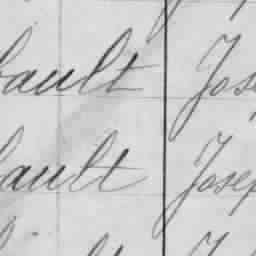 bault Jos
bault Josep